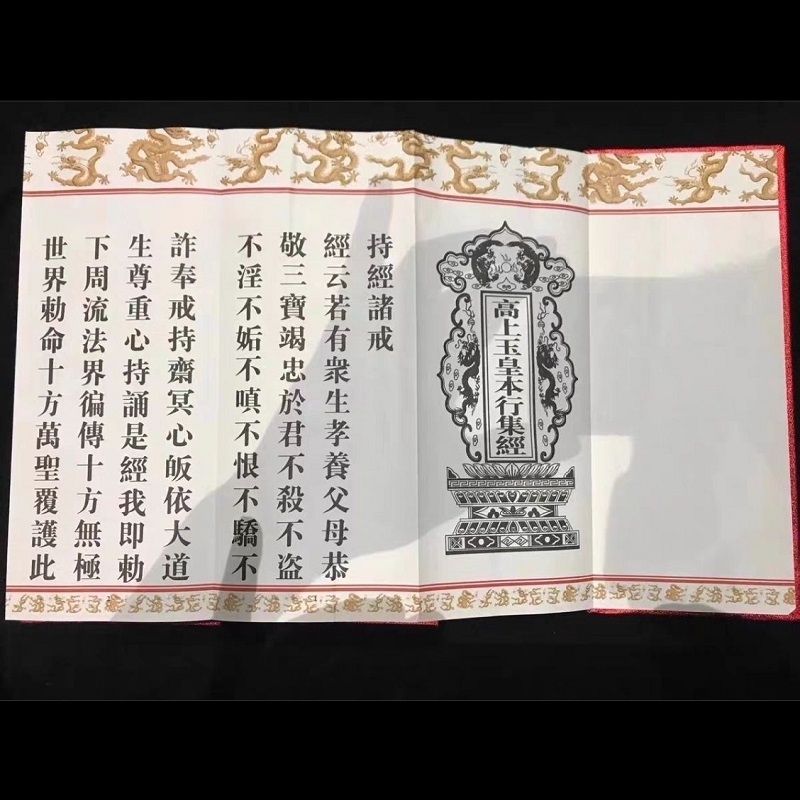 高上玉皇本行集經
持經諸戒
經云若有衆生孝養父母恭
敬三寶竭忠於君不殺不盜
不淫不妬不嗔不恨不驕不
詐奉戒持齋冥心皈依大道
生尊重心持誦是經我即勅
下周流法界徧傳十方無極
世界勅命十方萬聖覆護此